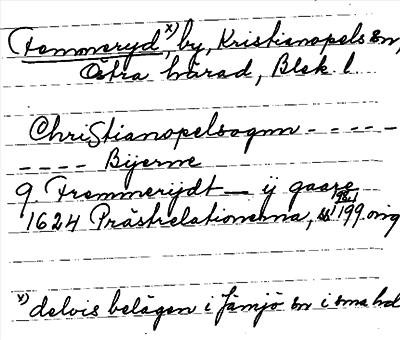 Femmeryd x), by, Kristianopels sn,
Östra härad, Blek. l.
Christianopelsognn - - - - -
- - - - Bijerne
9. Fremmerijdt — ij gaare
1624 Prästrelationerna, ss 198, 199. orig
x) delvis belägen i Jämjö sn i sma hd